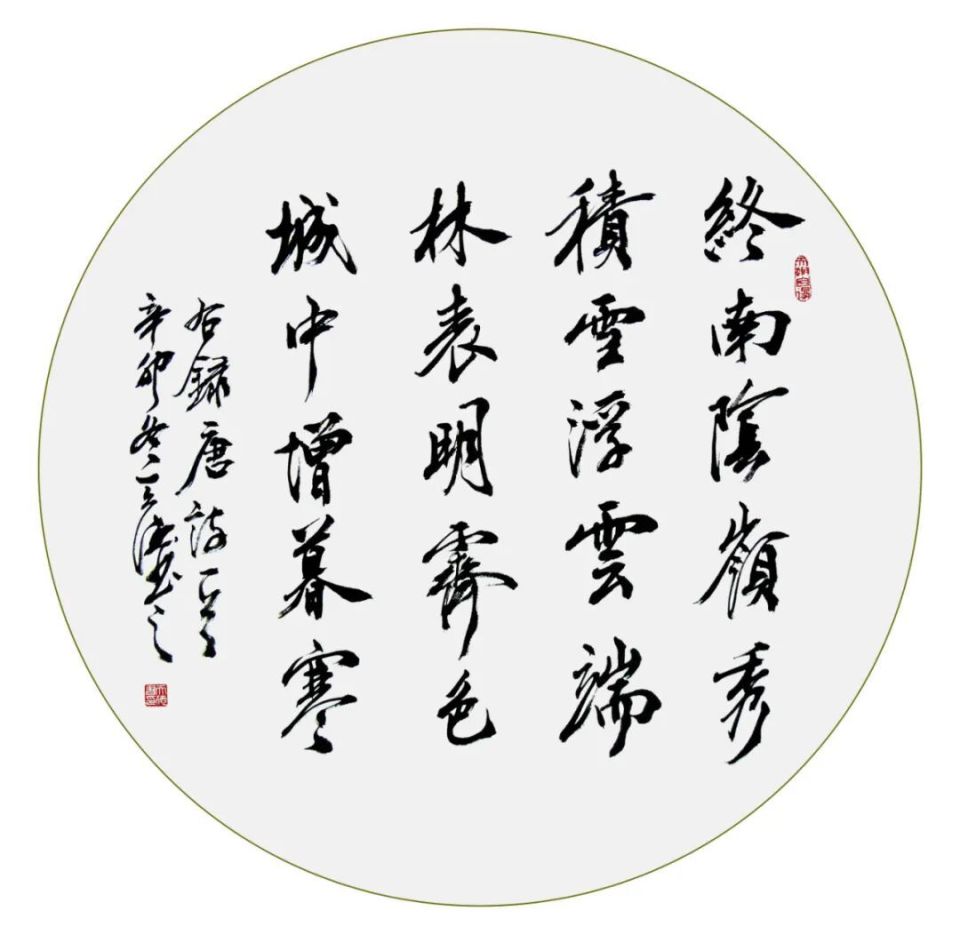 終南陰嶺秀
積雪浮雲端
林表明霽色
城中增暮寒
右録唐詩一首
辛卯冬
書之